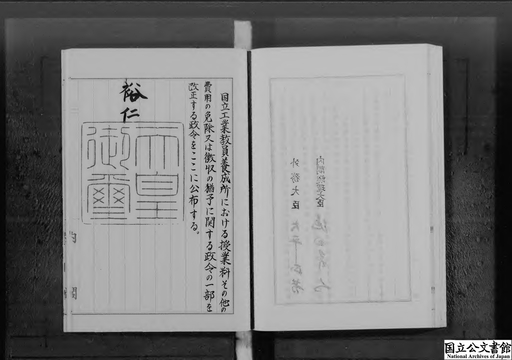 国立工業教員養成所における授業料その他の
費用の免除又は徴収の猶予に関する政令の一部を
改正する政令をここに公布する。
裕仁
天皇
御璽
外務大臣
国立公文書館
National Archives of Japan